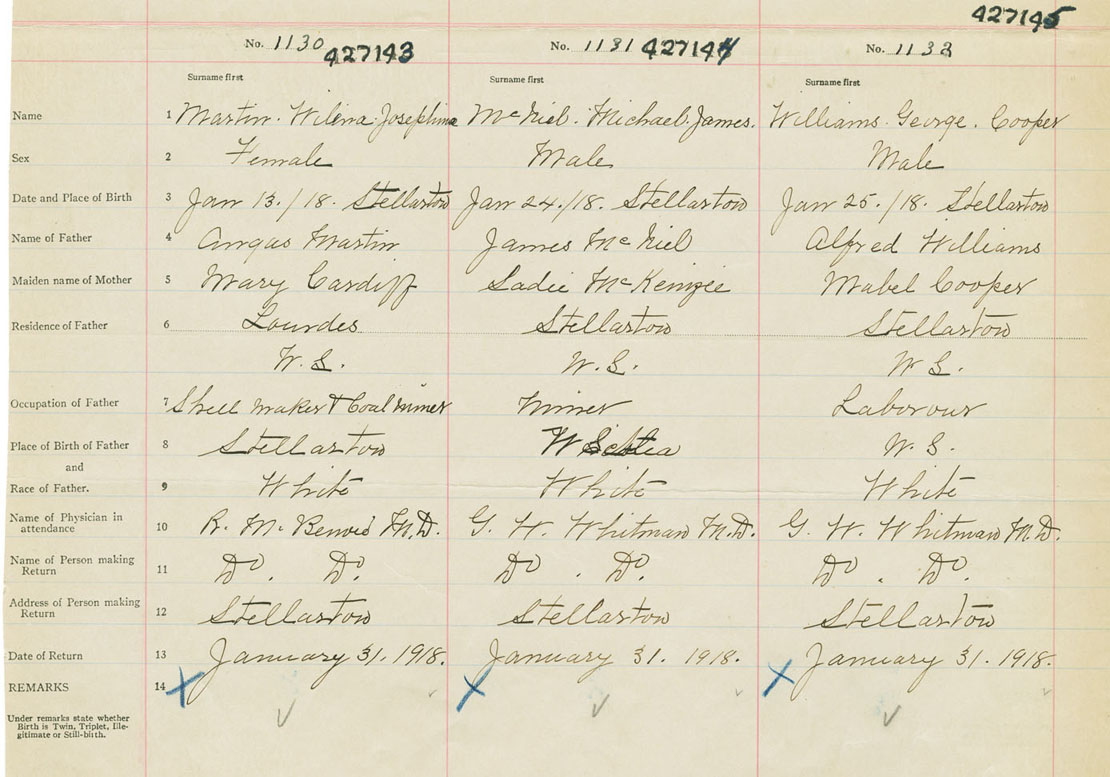 427145
No. 1130 427143 No. 1131 427144 No. 1132
Surname first Surname first Surname first
Name 1 Martin. Wilena Josephine McNiel. Michael. James. Williams. George. Cooper
Sex 2 Female Male Male
Date and Place of Birth 3 Jan 13./18. Stellarton Jan 24./18. Stellarton Jan 25./18. Stellarton
Name of Father 4 Angus Martin James McNiel Alfred Williams
Maiden name of Mother 5 Mary Cardiff Sadie McKenzie Mabel Cooper
Residence of Father 6 Lourdes Stellarton Stellarton
N.S. N.S. N.S.
Occupation of Father 7 maker & Coal miner Miner Laborour
Place of Birth of Father 8 Stellarton N Scotia N.S.
and
Race of Father. 9 White White White
Name of Physician in
attendance 10 R. M. M.D. G. W. Whitman M.D. G. W. Whitman M.D.
Name of Person making
Return 11 Do. Do. Do. Do. Do. Do.
Address of Person making
Return 12 Stellarton Stellarton Stellarton
Date of Return 13 January 31. 1918. January 31. 1918. January 31. 1918.
REMARKS 14
Under remarks state whether
Birth is Twin, Triplet, Ille-
gitimate or Still-birth.